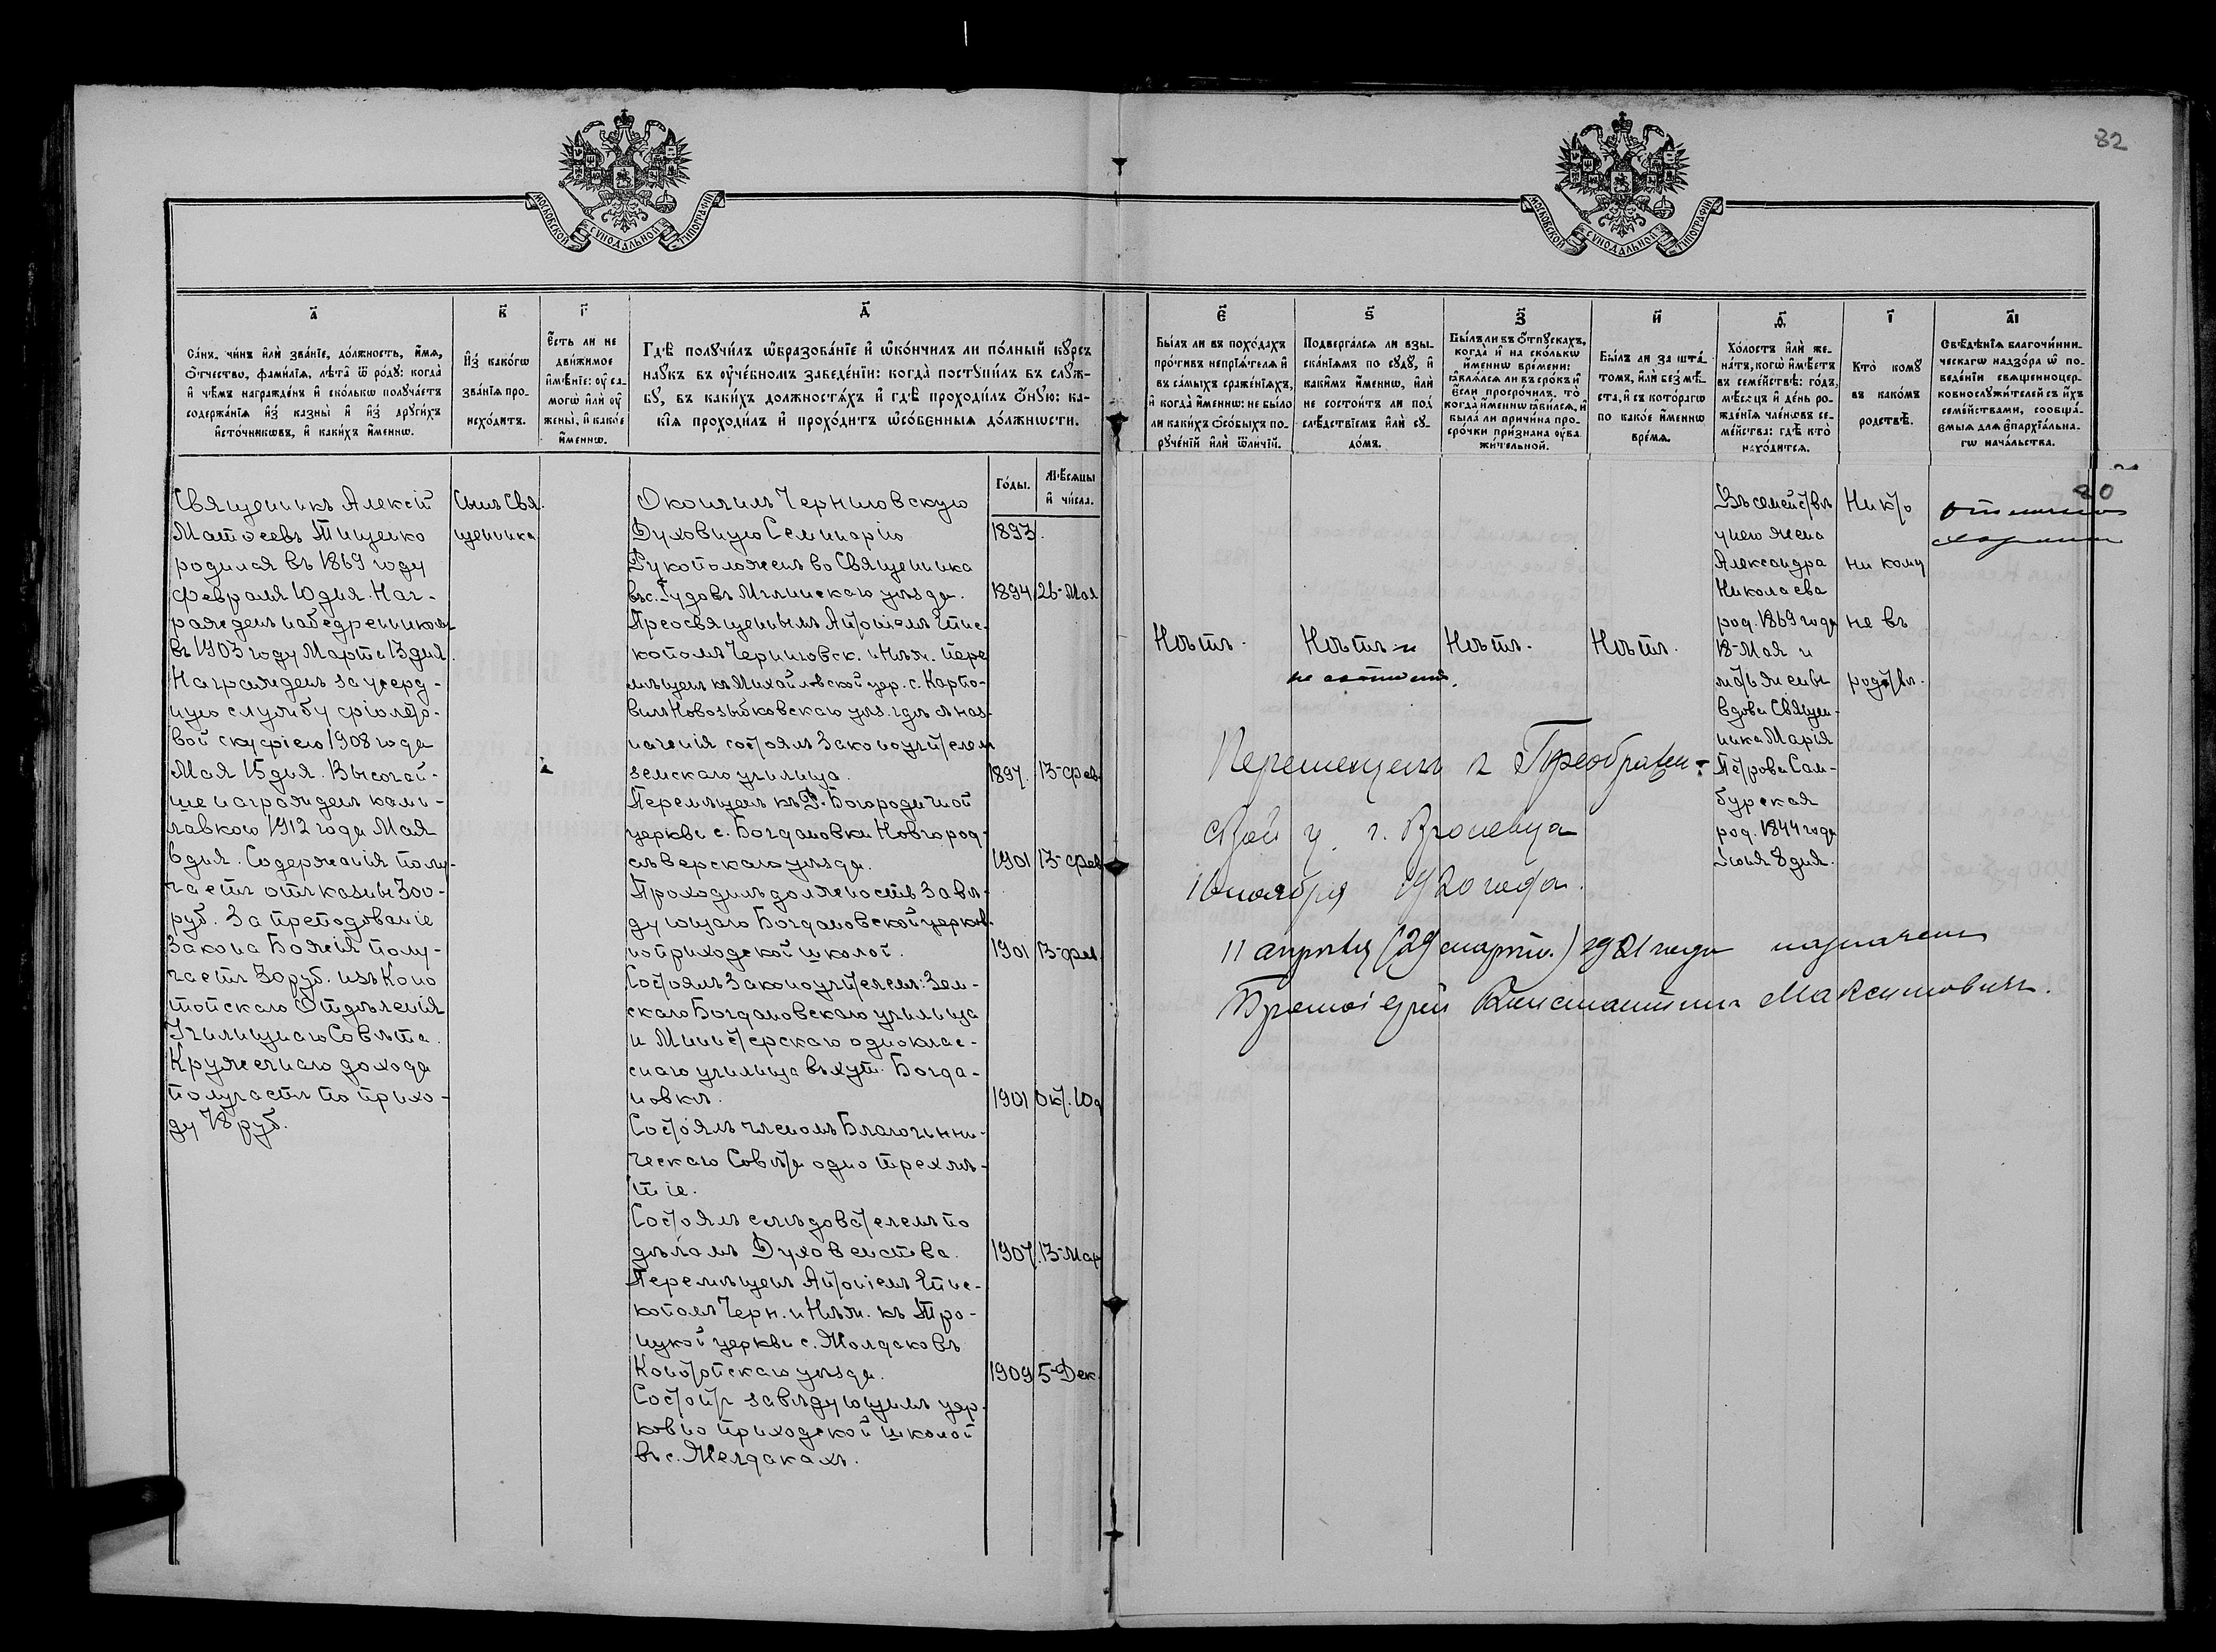 82
МОСКОВСКОЙ СѴНОДАЛЬНОЙ ТИПОГРАФІИ
МОСКОВСКОЙ СѴНОДАЛЬНОЙ ТИПОГРАФІИ
а҃
Са́нъ, чи́нъ и҆лѝ зва́нїе, до́лжность, и҆́мѧ,
ѻ҆́тчество, фами́лїѧ, лѣ́та ѿ ро́дꙋ: когда̀
и҆ чѣ́мъ награжде́нъ и҆ ско́лькѡ полꙋча́етъ
содержа́нїѧ и҆з̾ казны̀ и҆ и҆з̾ дрꙋги́хъ
и҆сто́чникѡвъ, и҆ каки́хъ и҆́меннѡ.
в҃
И҆з̾ како́гѡ
зва́нїѧ про-
исхо́дитъ.
г҃
Є҆́сть ли не
дви́жимое
и҆мѣ́нїе: ᲂу҆ са-
могѡ̀ и҆лѝ ᲂу҆
жены̀, и҆ како́е
и҆́меннѡ.
д҃
Гдѣ̀ полꙋчи́лъ ѡ҆бразова́нїе и҆ ѡ҆ко́нчилъ ли по́лный кꙋ́рсъ
наꙋ́къ въ ᲂу҆че́бномъ заведе́нїи: когда̀ постꙋпи́лъ въ слꙋ́ж-
бꙋ, въ каки́хъ должностѧ́хъ и҆ гдѣ̀ проходи́лъ ѻ҆́нꙋю: ка-
кі́ѧ проходи́лъ и҆ прохо́дитъ ѡ҆со́бенныѧ до́лжнѡсти.
Го́ды.
Мѣ́сѧцы
и҆ чи́сла.
Священникъ Алексій
Матѳеевъ Тищенко
родился въ 1869 году
Февраля 10 дня. Наг-
ражденъ набедренникомъ
въ 1903 году Марта 13 дня.
Награжденъ за усерд-
ную службу фіолето-
вой скуфіею 1908 года
Мая 15 дня. Высочай-
ше награжденъ ками-
лавкою 1912 года Мая
6 дня. Содержанія полу-
чаетъ отъ казны 300-
руб. За преподованіе
Закона Божія полу-
чаетъ 30 руб. изъ Коно
топскаго Отдѣленія
Училищнаго Совѣта.
Кружечнаго дохода
получаетъ по прихо-
ду 78 руб.
Сынъ Свя.
щенника
Окончилъ Черниговскую
Духовную Семинарію 1893.
Рукоположенъ во Священника
въ с. Гудовъ Мглинскаго уѣзда. 1894 26-Мая
Преосвященнымъ Антоніемъ Епис-
копомъ Черниговск. и Нѣж. Пере
мѣщенъ къ Михайловской цер. с. Карпо-
вичъ Новозыбковскаго уѣз. гдѣ съ наз-
наченія состоялъ Законоучителем
земскаго училища. 1897. 13-фев
Перемѣщенъ къ Р. Богородичной
церкви с. Богдановки Новгород-
сѣверскаго уѣзда. 1901 13-фев
Проходилъ должность Завѣ-
дующаго Богдановской церков-
ноприходской школой. 1901 13-фев.
Состоялъ Законоучителемъ: Зем-
скаго Богдановскаго училища
и Министерскаго одноклас-
снаго училища въ хут. Богда-
новкѣ. 1901 Окт. 10 д
Состоялъ членомъ Благочинни-
ческаго Совѣта одно трехлѣ-
тіе.
Состоялъ слѣдователемъ по
дѣламъ Духовенства. 1907. 13-Мар
Перемѣщенъ Антоніемъ Епис-
копомъ Черн. и Нѣж. къ Тро-
ицкой церкви с. Жолдаковъ
Конотопскаго уѣзда. 1909 5-Дек.
Состоитъ завѣдующимъ цер-
ковно приходской школой
въ с. Желдакахъ.
є҃
Бы́лъ ли въ похо́дахъ
про́тивъ непрїѧ́телѧ и҆
въ са́мыхъ сраже́нїѧхъ,
и҆ когда̀ и҆́меннѡ: не бы́ло
ли каки́хъ ѻ҆со́быхъ по-
рꙋче́нїй и҆лѝ ѿли́чїй.
ѕ҃
Подверга́лсѧ ли взы-
ска́нїѧмъ по сꙋдꙋ̀, и҆
каки́мъ и҆́меннѡ, и҆лѝ
не состои́тъ ли под̾
слѣ́дствїемъ и҆лѝ сꙋ-
до́мъ.
з҃
Бы́лъ ли въ ѻ҆́тпꙋскахъ,
когда̀ и҆ на ско́лькѡ
и҆́меннѡ вре́мени:
ꙗ҆влѧ́лсѧ ли въ сро́къ и҆
є҆́сли просро́чилъ, то̀
когда̀ и҆́меннѡ ꙗ҆ви́лсѧ, и҆
была̀ ли причи́на про-
сро́чки при́знана ᲂу҆ва
жи́тельной.
и҃
Бы́лъ ли за шта́-
томъ, и҆лѝ без̾ мѣ́-
ста, и҆ съ кото́рагѡ
по како́е и҆́меннѡ
вре́мѧ.
ѳ҃
Хо́лостъ и҆лѝ же-
на́тъ, кого̀ и҆мѣ́етъ
въ семе́йствѣ: го́дъ,
мѣ́сѧцъ и҆ де́нь ро-
жде́нїѧ чле́нѡвъ се-
ме́йства: гдѣ̀ кто̀
нахо́дитсѧ.
і҃
Кто̀ комꙋ̀
въ како́мъ
родствѣ̀.
а҃і
Свѣ́дѣнїѧ благочи́нни-
ческагѡ надзо́ра ѡ҆ по-
веде́нїи свѧщенноцер-
ковнослꙋжи́телей съ и҆́хъ
семе́йствами, сообща́-
емыѧ для є҆пархїа́льна-
гѡ нача́льства.
Нѣтъ.
Нѣтъ и
не состоитъ.
Нѣтъ.
Нѣтъ.
Въ семействѣ
у него жена
Александра
Николаева
род. 1869 года
18-Мая и
мать жены
вдова Священ-
ника Марія
Петрова Сам-
бурская
род. 1844 года
Іюня 8 дня.
Никто
ни кому
не въ
родствѣ.
20
отлично
хорошаго
Перемещенъ к Преображен-
ской ц. г. Кролевца
10 ноября 1920 года.
11 апреля (29 март.) 1921 года назначенъ
Протоіерей Константинъ Максимовичъ.